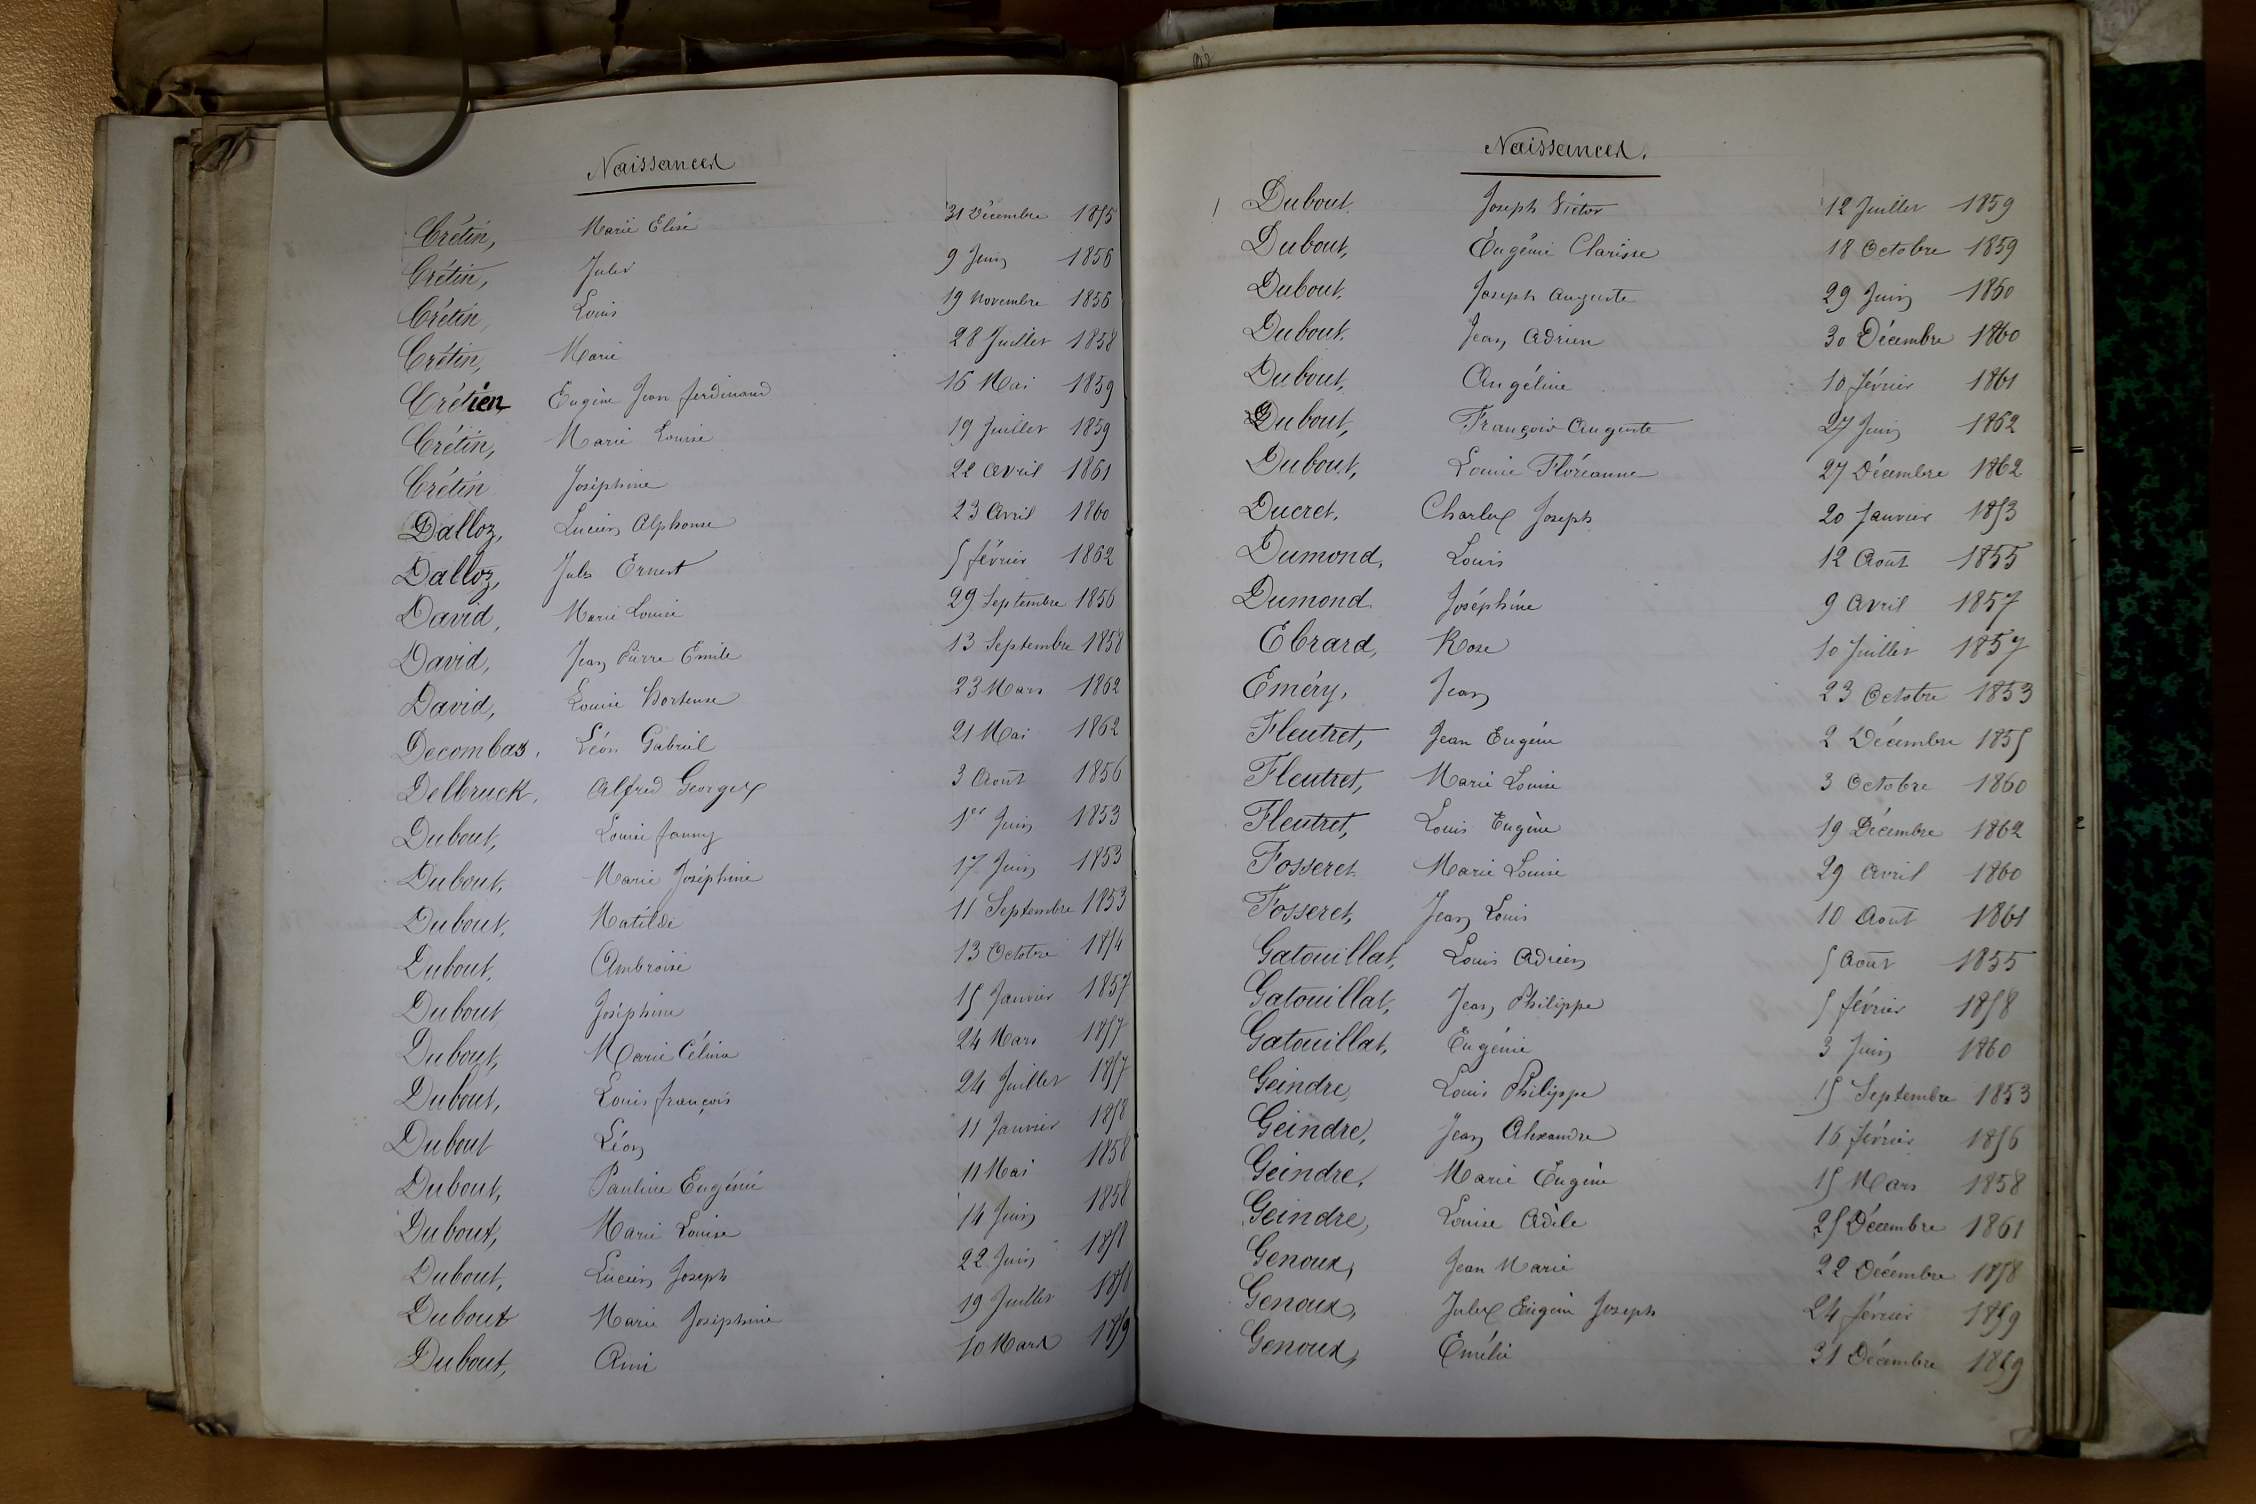 Naissances
Crétin, Marie Elise 31 Décembre 1855
Crétin, Jules 9 Juin 1856
Crétin, Louis 19 Novembre 1856
Crétin, Marie 28 Juillet 1858
Crétien Eugène Jean ferdinand 16 Mai 1859
Crétin, Marie Louise 19 Juillet 1859
Crétin Joséphine 22 Avril 1861
Dalloz, Lucien Alphonse 23 Avril 1860
Dalloz, Jules Ernest 5 février 1862
David, Marie Louise 29 Septembre 1856
David, Jean Pierre Emile 13 Septembre 1858
David, Louise Hortense 23 Mars 1862
Decombas, Léon Gabriel 21 Mai 1862
Delbruck, Alfred Georges 3 Août 1856
Dubout, Louise fanny 1er Juin 1853
Dubout, Marie Joséphine 17 Juin 1853
Dubout, Matilde 11 Septembre 1853
Dubout, Ambroise 13 Octobre 1854
Dubout Joséphine 15 Janvier 1857
Dubout, Marie Célina 24 Mars 1857
Dubout, Louis françois 24 Juillet 1857
Dubout Léon 11 Janvier 1858
Dubout, Pauline Eugénie 11 Mai 1858
Dubout, Marie Louise 14 Juin 1858
Dubout, Lucien Joseph 22 Juin 1858
Dubout Marie Joséphine 19 Juillet 1858
Dubout, Ami 10 Mars 1859
Naissances.
Dubout. Joseph Victor 12 Juillet 1859
Dubout, Eugénie Clarisse 18 Octobre 1859
Dubout. Joseph Auguste 29 Juin 1860
Dubout. Jean Adrien 30 Décembre 1860
Dubout, Angéline 10 février 1861
Dubout, François Auguste 27 Juin 1862
Dubout, Louise Floréanne 27 Décembre 1862
Ducret. Charles Joseph 20 Janvier 1853
Dumond, Louis 12 Août 1855
Dumond. Joséphine 9 Avril 1857
Ebrard, Rose 10 Juillet 1857
Eméry, Jean 23 Octobre 1853
Fleutret, Jean Eugène 2 Décembre 1855
Fleutret, Marie Louise 3 Octobre 1860
Fleutret, Louis Eugène 19 Décembre 1862
Fosseret Marie Louise 29 Avril 1860
Fosseret, Jean Louis 10 Août 1861
Gatouillat, Louis Adrien 5 Août 1855
Gatouillat, Jean Philippe 5 février 1858
Gatouillat, Eugénie 3 Juin 1860
Geindre, Louis Philippe 15 Septembre 1853
Geindre, Jean Alexandre 16 février 1856
Geindre, Marie Eugénie 15 Mars 1858
Geindre, Louise Adèle 25 Décembre 1861
Genoux, Jean Marie 22 Décembre 1858
Genoux, Jules Eugène Joseph 24 février 1859
Genoux, Emélie 31 Décembre 1859